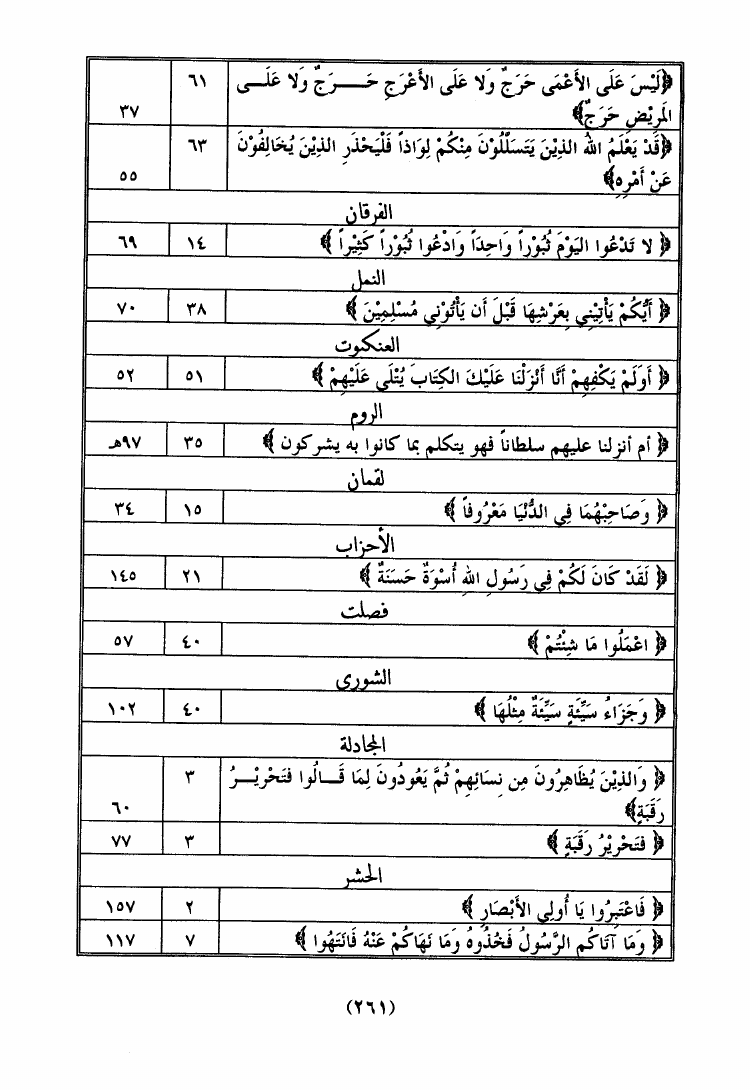 ﴿لَيْسَ عَلَى الأَعْمَى حَرَجٌ وَلا عَلَى الأَعْرَجِ حَـــرَجٌ وَلا عَلَـــى ٦١
المَرِيْضِ حَرَجٌ﴾ ٣٧
﴿قَدْ يَعْلَمُ اللهُ الذِيْنَ يَتَسَلَّلُوْنَ مِنْكُمْ لِوَاذاً فَلْيَحْذَرِ الذِيْنَ يُخَالِفُوْنَ ٦٣
عَنْ أَمْرِهِ﴾ ٥٥
الفرقان
﴿ لا تَدْعُوا اليَوْمَ ثُبُوْراً وَاحِدَاً وَادْعُوا ثُبُوْراً كَثِيْراً ﴾ ١٤ ٦٩
النمل
﴿ أَيُّكُمْ يَأْتِيْنِي بِعَرْشِهَا قَبْلَ أَن يَأْتُوْنِي مُسْلِمِيْنَ ﴾ ٣٨ ٧٠
العنكبوت
﴿ أَوَلَمْ يَكْفِهِمْ أَنَّا أَنْزَلْنَا عَلَيْكَ الكِتَابَ يُتْلَى عَلَيْهِمْ ﴾ ٥١ ٥٢
الروم
﴿ أم أنزلنا عليهم سلطاناً فهو يتكلم بما كانوا به يشركون ﴾ ٣٥ ٩٧هـ
لقمان
﴿ وَصَاحِبْهُمَا فِي الدُّنْيَا مَعْرُوفاً ﴾ ١٥ ٣٤
الأحزاب
﴿ لَقَدْ كَانَ لَكُمْ فِي رَسُولِ اللهِ أُسْوَةٌ حَسَنَةٌ ﴾ ٢١ ١٤٥
فصلت
﴿ اعْمَلُوا مَا شِئْتُمْ ﴾ ٤٠ ٥٧
الشورى
﴿ وَجَزَاءُ سَيِّئَةٍ سَيِّئَةٌ مِثْلُهَا ﴾ ٤٠ ١٠٢
المجادلة
﴿ وَالذِيْنَ يُظَاهِرُونَ مِن نِسَائِهِمْ ثُمَّ يَعُودُونَ لِمَا قَـــالُوا فَتَحْرِيْـــرُ ٣
رَقَبَةٍ﴾ ٦٠
﴿ فَتَحْرِيْرُ رَقَبَةٍ ﴾ ٣ ٧٧
الحشر
﴿ فَاعْتَبِرُوا يَا أُولِي الأَبْصَارِ ﴾ ٢ ١٥٧
﴿ وَمَا آتَاكُم الرَّسُولُ فَخُذُوهُ وَمَا نَهَاكُمْ عَنْهُ فَانتَهُوا ﴾ ٧ ١١٧
(٢٦١)